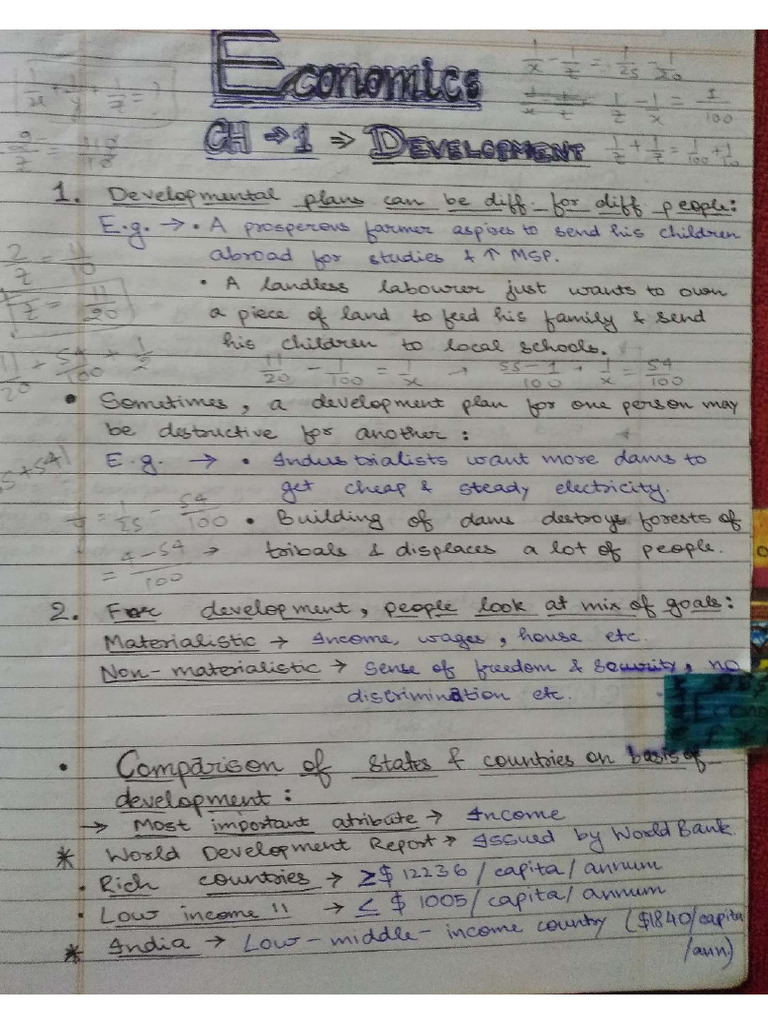 Economics
CH → 1 ⇒ Development
1. Developmental plans can be diff for diff people:
E.g. → • A prosperous farmer aspires to send his children
abroad for studies & ↑ MSP.
• A landless labourer just wants to own
a piece of land to feed his family & send
his children to local schools.
11/20 - 1/100 = 1/x → 55-1/100 + 1/x = 54/100
• Sometimes, a development plan for one person may
be destructive for another:
E.g. → • Industrialists want more dams to
get cheap & steady electricity.
• Building of dams destroys forests of
tribals & displaces a lot of people.
2. For development, people look at mix of goals:
Materialistic → Income, wages, house etc.
Non-materialistic → Sense of freedom & security, no
discrimination etc.
• Comparison of states & countries on basis of
development:
→ Most important atribute → Income
* World Development Report → Issued by World Bank.
• Rich countries → ≥ $ 12236 / capita / annum
• Low income " → ≤ $ 1005 / capita / annum
* India → Low-middle-income country ($1840/capita
/ann.)